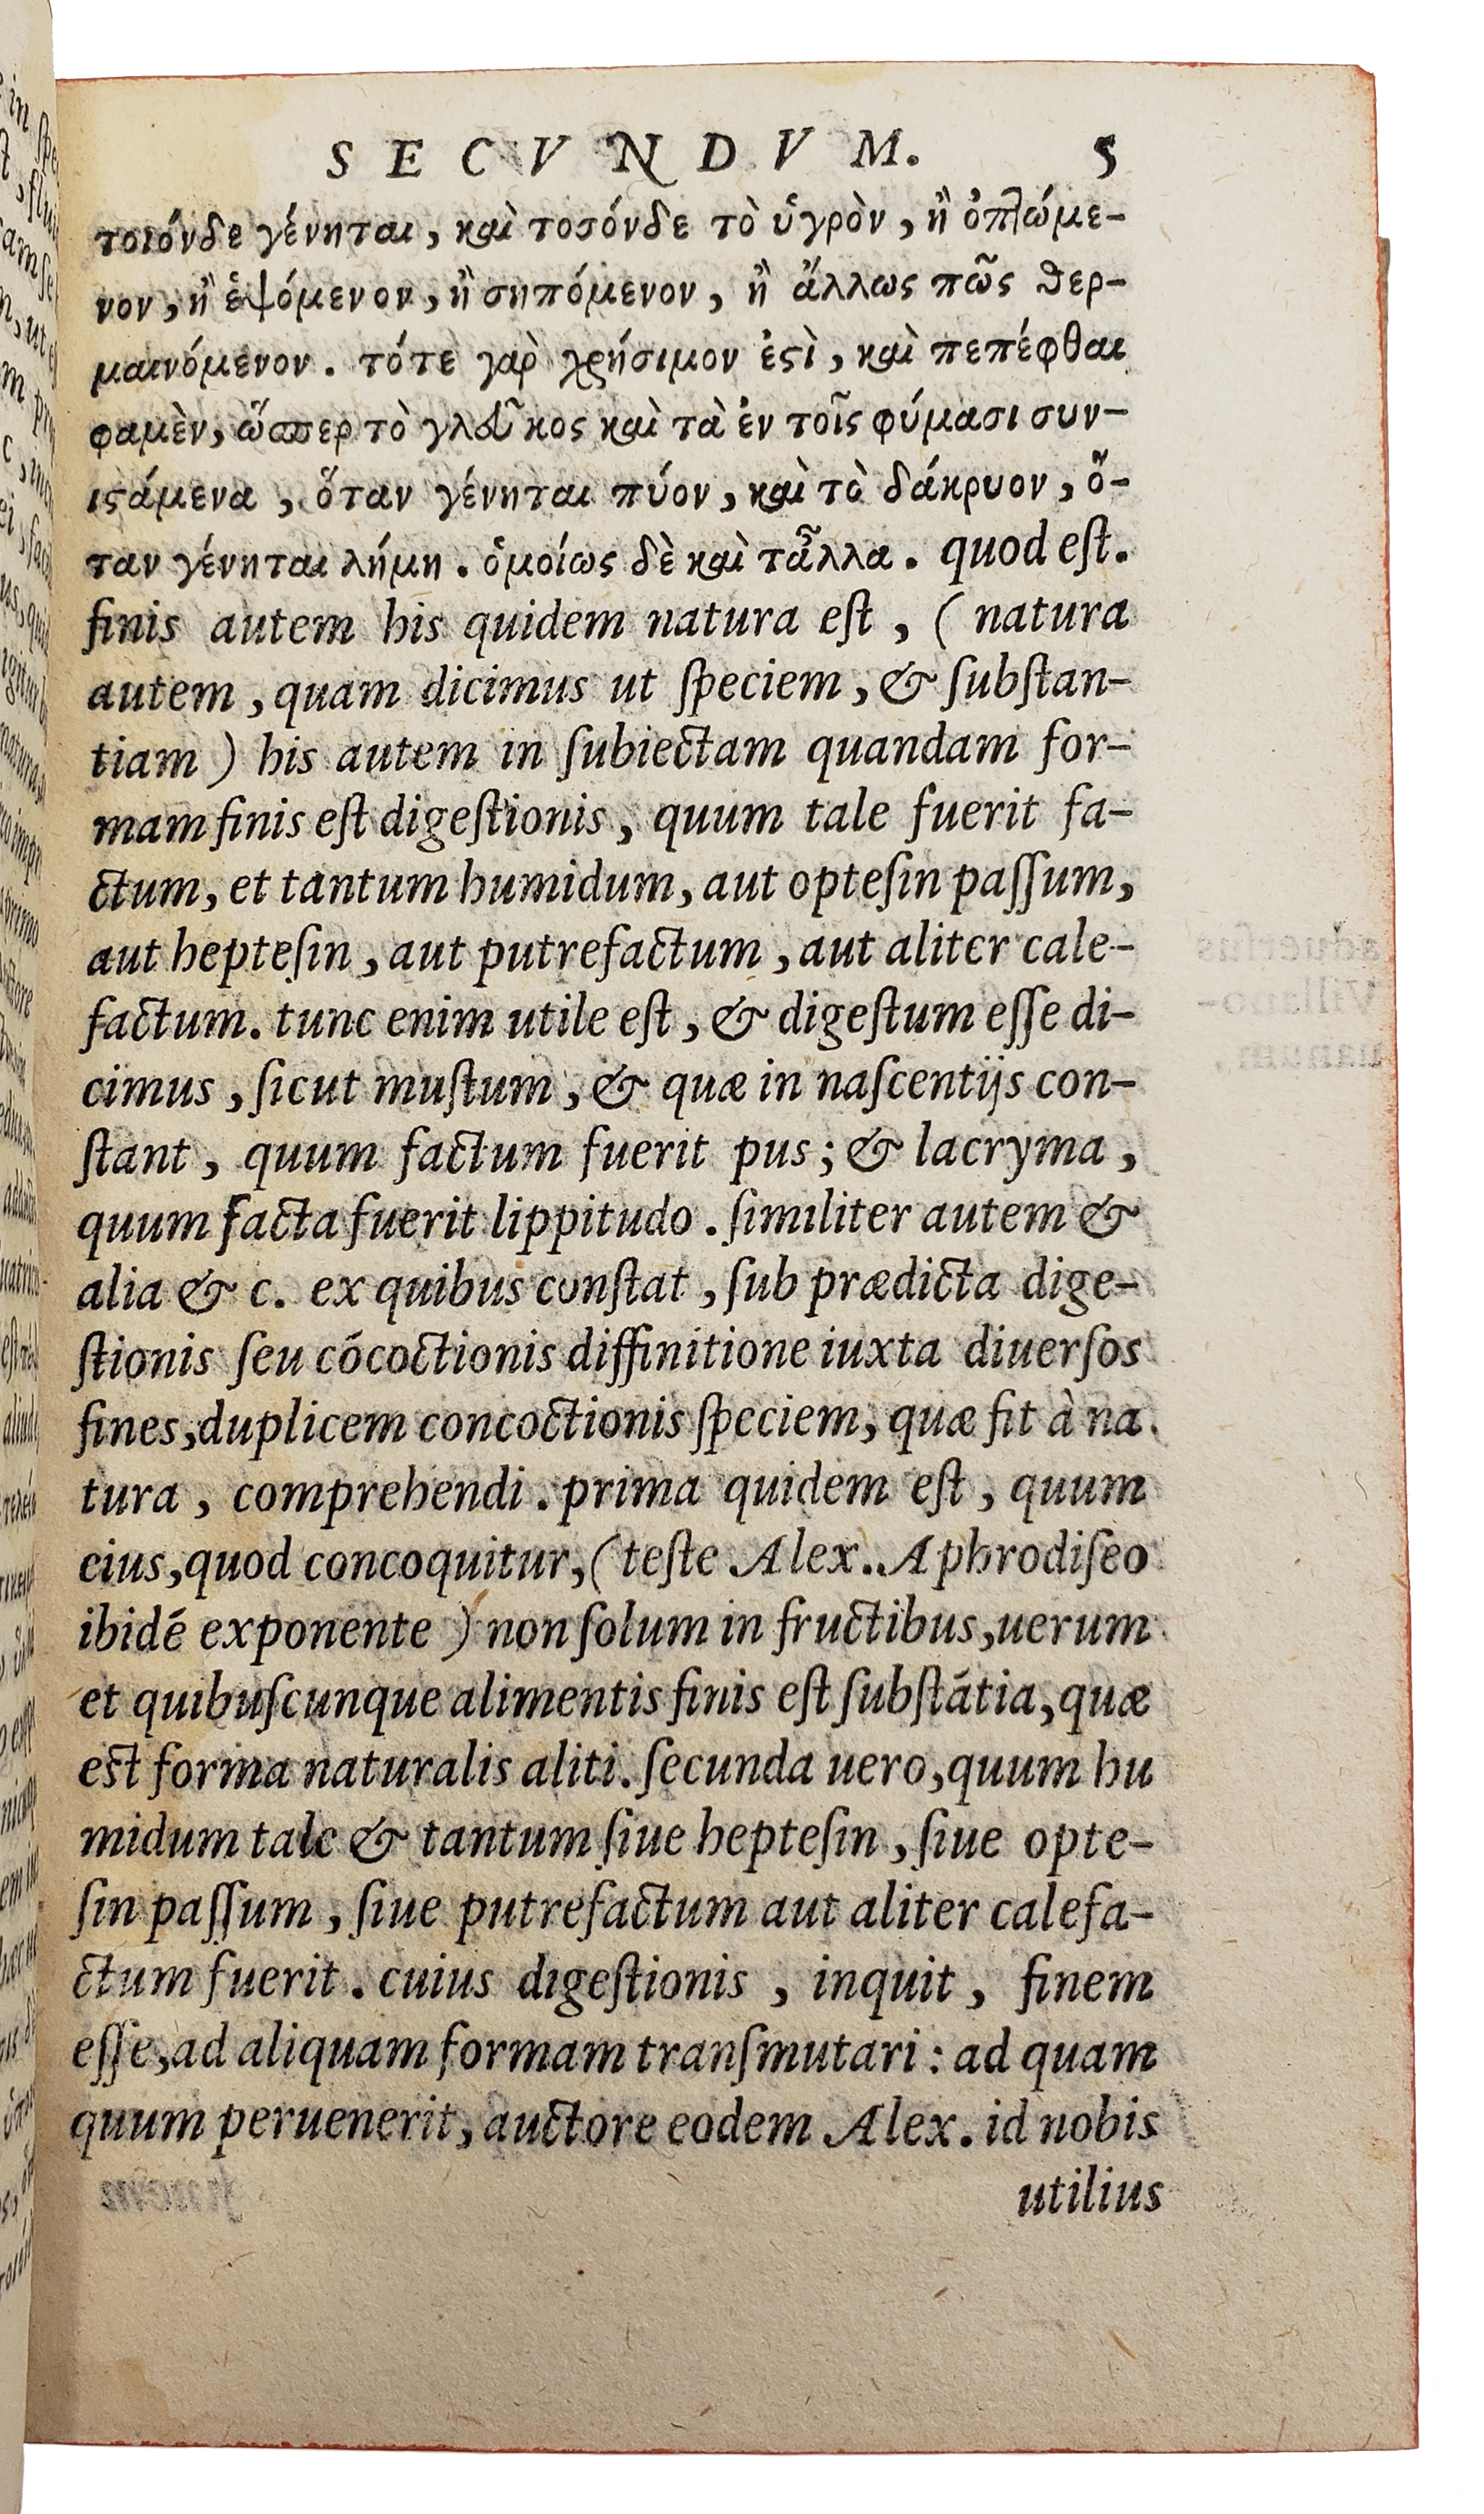 SECVNDVM. 5
τοιόνδε γένηται, καὶ τοσόνδε τὸ ὑγρὸν, ἢ ὀπλώμε-
νον, ἢ ἑψόμενον, ἢ σηπόμενον, ἢ ἄλλως πῶς θερ-
μαινόμενον. τότε γὰρ χρήσιμον ἐςὶ, καὶ πεπέφθαι
φαμὲν, ὥσπερ τὸ γλεῦκος καὶ τὰ ἐν τοῖς φύμασι συν-
ιςάμενα, ὅταν γένηται πύον, καὶ τὸ δάκρυον, ὅ-
ταν γένηται λήμη. ὁμοίως δὲ καὶ τἆλλα. quod eſt.
finis autem his quidem natura eſt, ( natura
autem, quam dicimus ut ſpeciem, & ſubſtan-
tiam ) his autem in ſubiectam quandam for-
mam finis eſt digeſtionis, quum tale fuerit fa-
ctum, et tantum humidum, aut opteſin paſſum,
aut hepteſin, aut putrefactum, aut aliter cale-
factum. tunc enim utile eſt, & digeſtum eſſe di-
cimus, ſicut muſtum, & quæ in naſcentijs con-
ſtant, quum factum fuerit pus; & lacryma,
quum facta fuerit lippitudo. ſimiliter autem &
alia & c. ex quibus conſtat, ſub prædicta dige-
ſtionis ſeu cócoctionis diffinitione iuxta diuerſos
fines, duplicem concoctionis ſpeciem, quæ fit à na
tura, comprehendi. prima quidem eſt, quum
eius, quod concoquitur, ( teſte Alex. Aphrodiſeo
ibidé exponente ) non ſolum in fructibus, uerum
et quibuſcunque alimentis finis eſt ſubſtátia, quæ
est forma naturalis aliti. ſecunda uero, quum hu
midum tale & tantum ſiue hepteſin, ſiue opte-
ſin paſſum, ſiue putrefactum aut aliter calefa-
ctum fuerit. cuius digeſtionis, inquit, finem
eſſe, ad aliquam formam tranſmutari: ad quam
quum peruenerit, auctore eodem Alex. id nobis
utilius